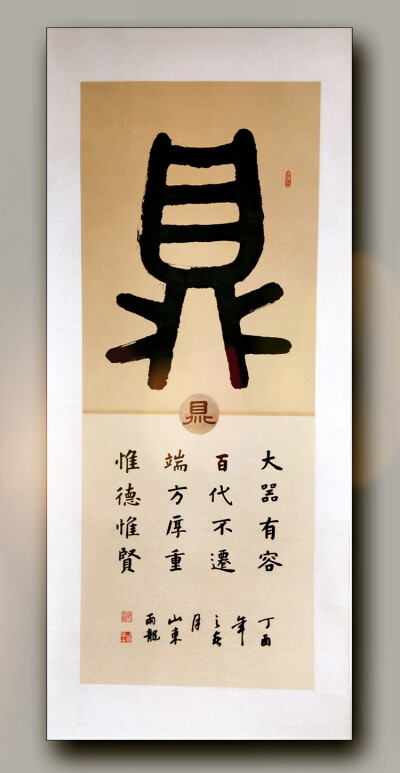 鼎
鼎
大器有容
百代不遷
端方厚重
惟德惟賢
丁酉
年
之春
月
山東
雨龍